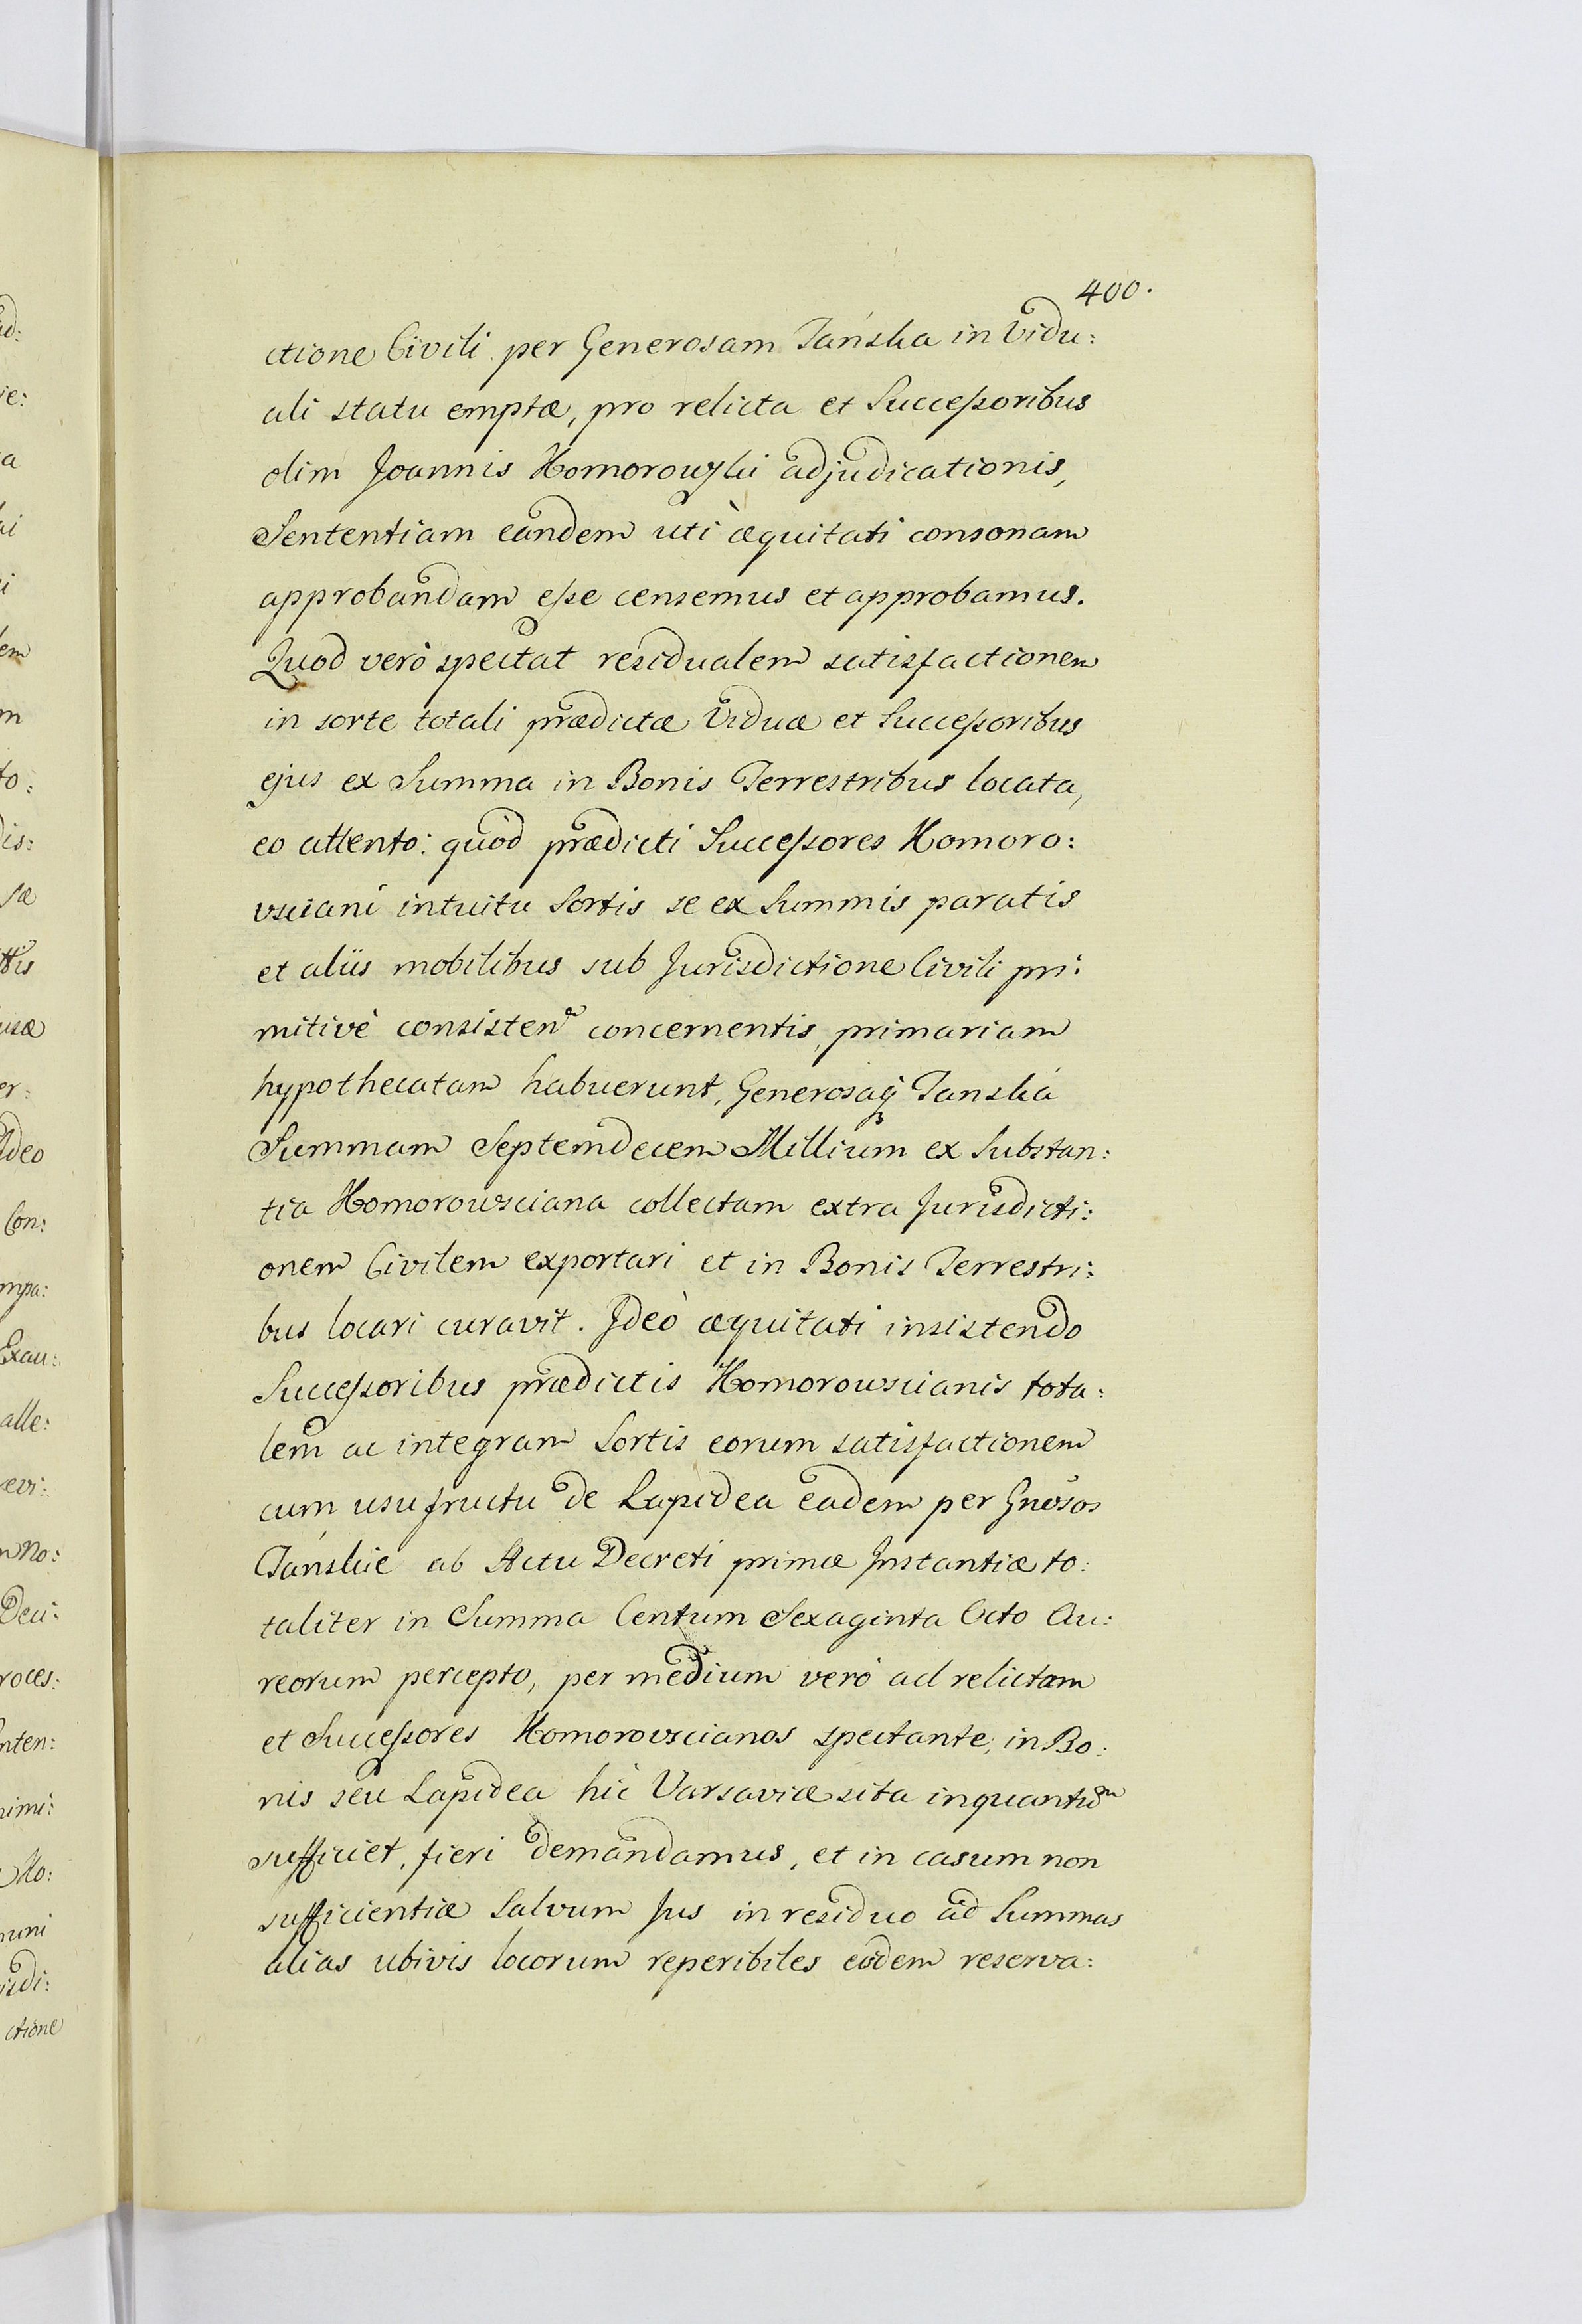 400.
ctione Civili per Generosam Tańska in Vidu:
ali statu emptæ, pro relicta et Successoribus
olim Joannis Komorowski adjudicationis,
Sententiam eandem uti æquitati consonam
approbandam esse censemus et approbamus.
Quod verò spectat residualem satisfactionem
in sorte totali prædictæ Viduæ et Successoribus
ejus ex Summa in Bonis Terrestribus locata,
eo attento: quòd prædicti Successores Komoro:
vsciani intuitu Sortis se ex Summis paratis
et aliis mobilibus sub Jurisdictione Civili pri:
mitivè consisten concernentis, primariam
hypothecatam habuerunt, Generosaq Tanska
Summam Septemdecem Millium ex Substan:
tia Komorowsciana collectam extra Jurisdicti:
onem Civilem exportari et in Bonis Terrestri:
bus locari curavit. Ideò æquitati insistendo
Successoribus prædictis Komorowscianis tota:
lem ac integram Sortis eorum satisfactionem
cum usufructu de Lapidea eadem per Gnosos
Tańskie ab Actu Decreti primæ Instantiæ to:
taliter in Summa Centum Sexaginta Octo Au:
reorum percepto, per medium verò ad relictam
et Successores Komorovscianos spectante, in Bo:
nis seu Lapidea hic Varsaviæ sita inquantum
sufficiet, fieri demandamus, et in casum non
sufficientiæ Salvum Jus in residuo ad Summas
alias ubivis locorum reperibiles eisdem reserva: